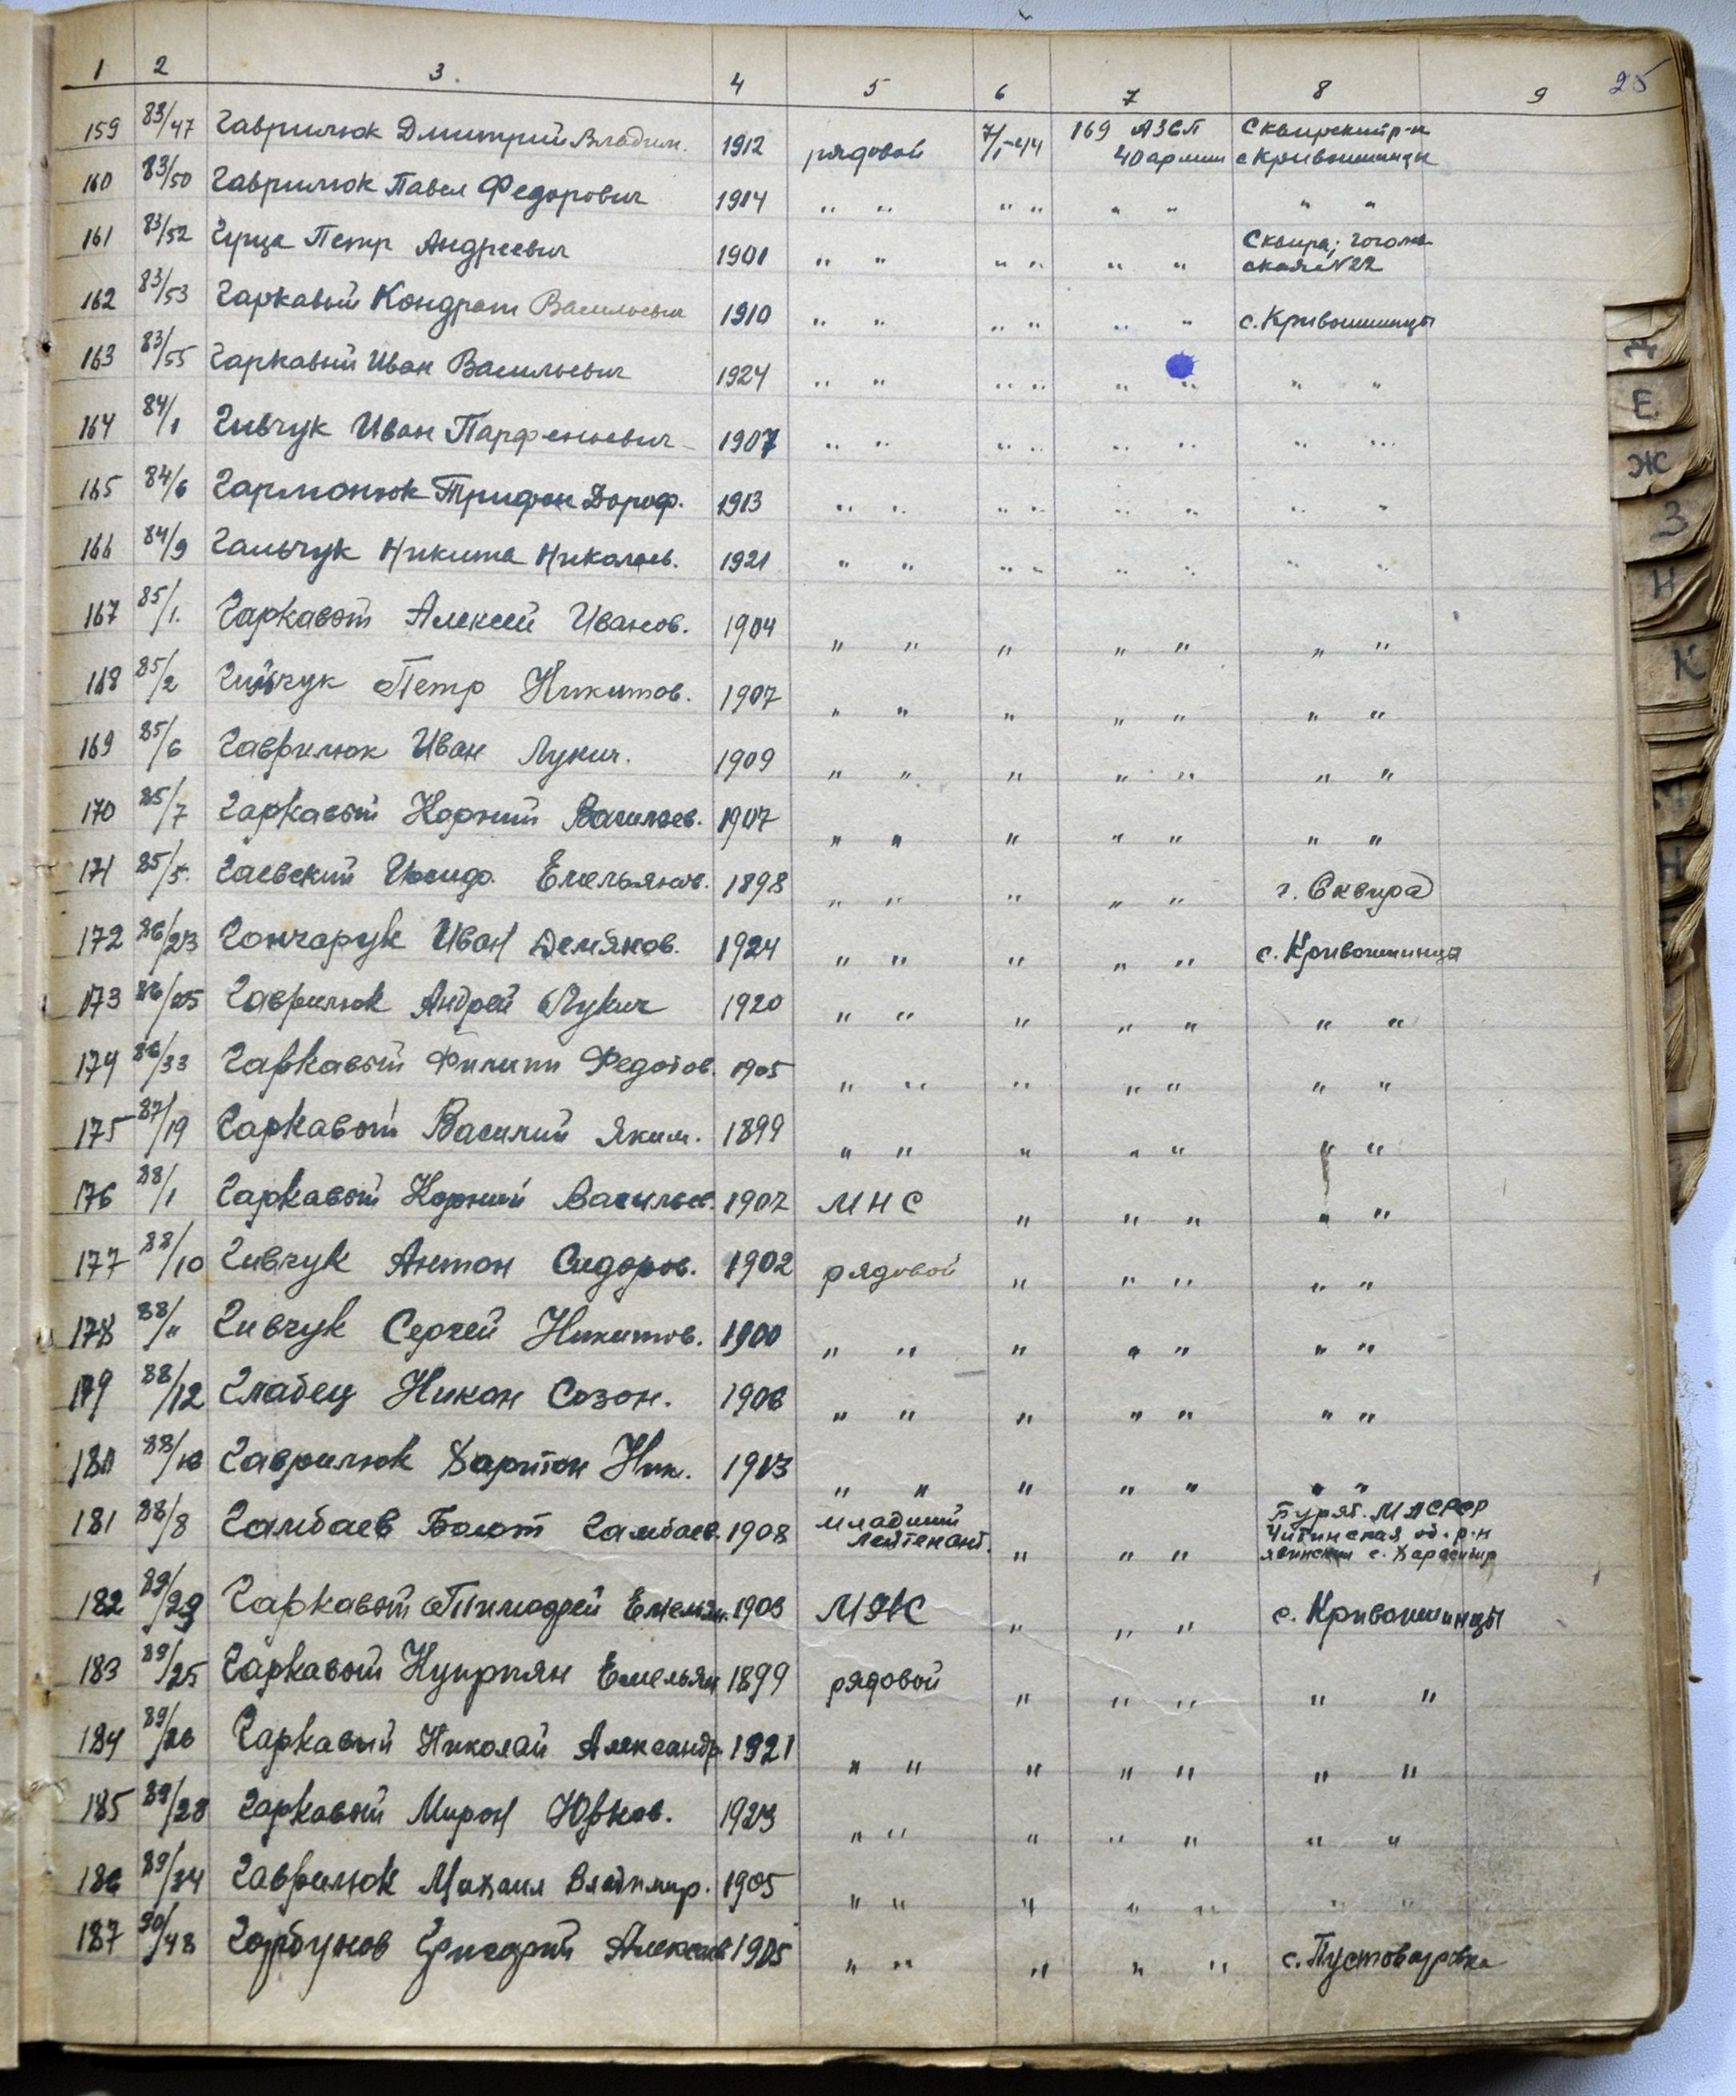 25
1 2 3. 4 5 6 7 8 9
159 83/47 Гаврилюк Дмитрий Владим. 1912 рядовой 7/I-44 169 АЗСП 40 армии Сквирский р-н с Кривошиинцы
160 83/50 Гаврилюк Павел Федорович 1914 " " " " " " " "
161 83/52 Петр Андреевич 1901 " " " " " " Сквира; Гоголевская №22
162 83/53 Гаркавый Кондрат Васильевич 1910 " " " " " " с. Кривошиинцы
163 83/55 Гаркавый Иван Васильевич 1924 " " " " " " " "
164 84/1 Гивчук Иван Парфеньевич 1907 " " " " " " " "
165 84/6 Гармонюк Трифон Дороф. 1913 " " " " " " " "
166 84/9 Гальчук Никита Николаев. 1921 " " " " " " " "
167 85/1. Гаркавый Алексей Иванов. 1904 " " " " " " "
168 85/2 Петр Никитов. 1907 " " " " " " "
169 85/6 Гаврилюк Иван Лукич. 1909 " " " " " " "
170 85/7 Гаркавый Корний Васильев. 1907 " " " " " " "
171 85/5. Гаевский Емельянов. 1898 " " " " " г. Сквира
172 86/23 Гончарук Иван Демянов. 1924 " " " " " с. Кривошиинцы
173 86/25 Гаврилюк Андрей Лукич 1920 " " " " " " "
174 86/33 Гаркавый Филипп Федотов. 1905 " " " " " " "
175 87/19 Гаркавый Василий Яким. 1899 " " " " " " "
176 88/1 Гаркавый Корний Васильев. 1907 МНС " " " " "
177 88/10 Гивчук Антон Сидоров. 1902 рядовой " " " " "
178 88/11 Гивчук Сергей Никитов. 1900 " " " " " " "
179 88/12 Глабец Никон Созон. 1906 " " " " " " "
180 88/18 Гаврилюк Харитон Ник. 1913 " " " " " " "
181 88/8 Гамбаев Болот Гамбаев. 1908 младший лейтенант. " " " Бурят. МАССР Читинская об. р-н
182 89/29 Гаркавый Тимофей Емельян. 1903 МЯС " " " с. Кривошиинцы
183 89/25 Гаркавый Куприян Емельян 1899 рядовой " " " " "
184 89/26 Гаркавый Николай Александр. 1921 " " " " " " "
185 89/28 Гаркавый Мирон Юрков. 1923 " " " " " " "
186 89/34 Гаврилюк Михаил Владимир. 1905 " " " " " " "
187 90/48 Горбунов Григорий Алексеев 1905 " " " " " с. Пустоваровка
Е
Ж
З
И
К
Н